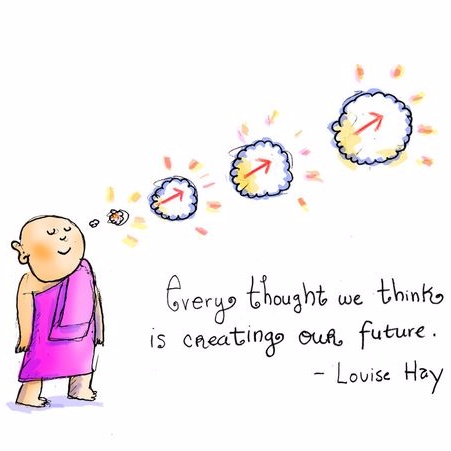 Every thought we think
is creating our future.
- Louise Hay